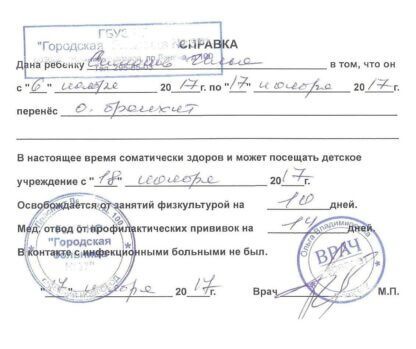 ГБУЗ
"Городская
СПРАВКА
Дана ребенку в том, что он
с "6" ноября 2017г. по "17" ноября 2017г.
перенёс о. бронхит
В настоящее время соматически здоров и может посещать детское
учреждение с "18" ноября 2017г.
Освобождается от занятий физкультурой на 10 дней.
Мед. отвод от профилактических прививок на 14 дней.
В контакте с инфекционными больными не был.
"17" ноября 2017г. Врач М.П.
"Городская
больница
Ольга Владимировна
ВРАЧ